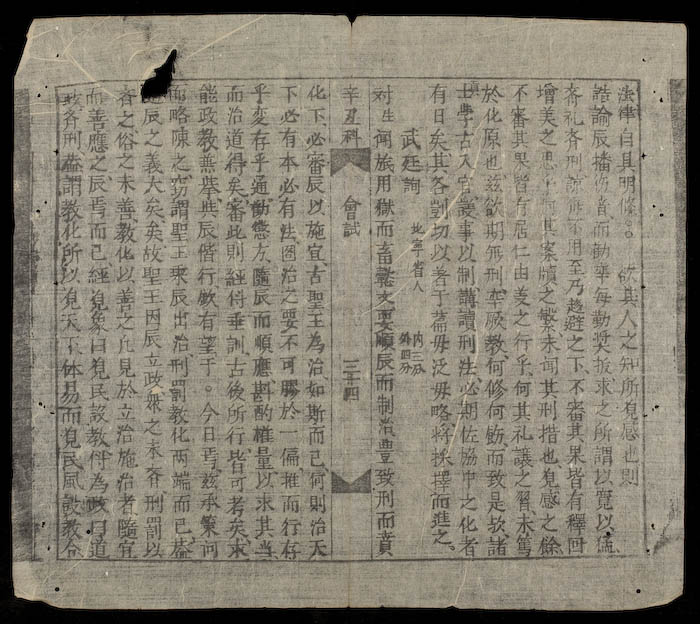 法律白具明條。欲其人之知所覓感也則
誥諭辰播仍者而勸率每勤奬拔求之所謂以寬以猛
齐礼齐刑說所不用至乃趨避之下不審其果皆有釋回
增美之思乎何其案牘之繁未甸其刑措也覓感之餘
不審其果皆有居仁由義之行乎何其礼讓之習未篤
於化原也兹欲期無刑率厥教何修何飭而致是欤諸
士學古入官議事以制講讀刑法必期佐協中之化者
有日矣其各剴切以著于萹毋泛毋略將採擇而進之
武廷詢 北寧省人 内三分 外四分
対生 聞旅用獄而畜懿文要順辰而制治豊致刑而賁
辛丑科 會試 三十四
化下必審辰以施宜古聖王為治如斯而已何則治天
下必有本必有法圖治之要不可膠於一偏推而行存
乎変存乎通動懲方隨辰而順應斟酌權量以求其当
而治道得矣審此則經傳垂訓古後所行皆可考矣求
能政教無墓與辰偕行歟有望于今日焉兹承策问
而略陳之窃謂聖王乘辰出治刑罰教化两端而已葢
隨辰之義大矣矣故聖王因辰立政衆之未齐刑罰以
齐之俗之未善教化以善之凡見於立治施治者隨宜
而善應之辰焉而已經覓象曰覓民設教仵為政曰道
政齐刑葢謂教化所以覓天下体易而覓民風設教合